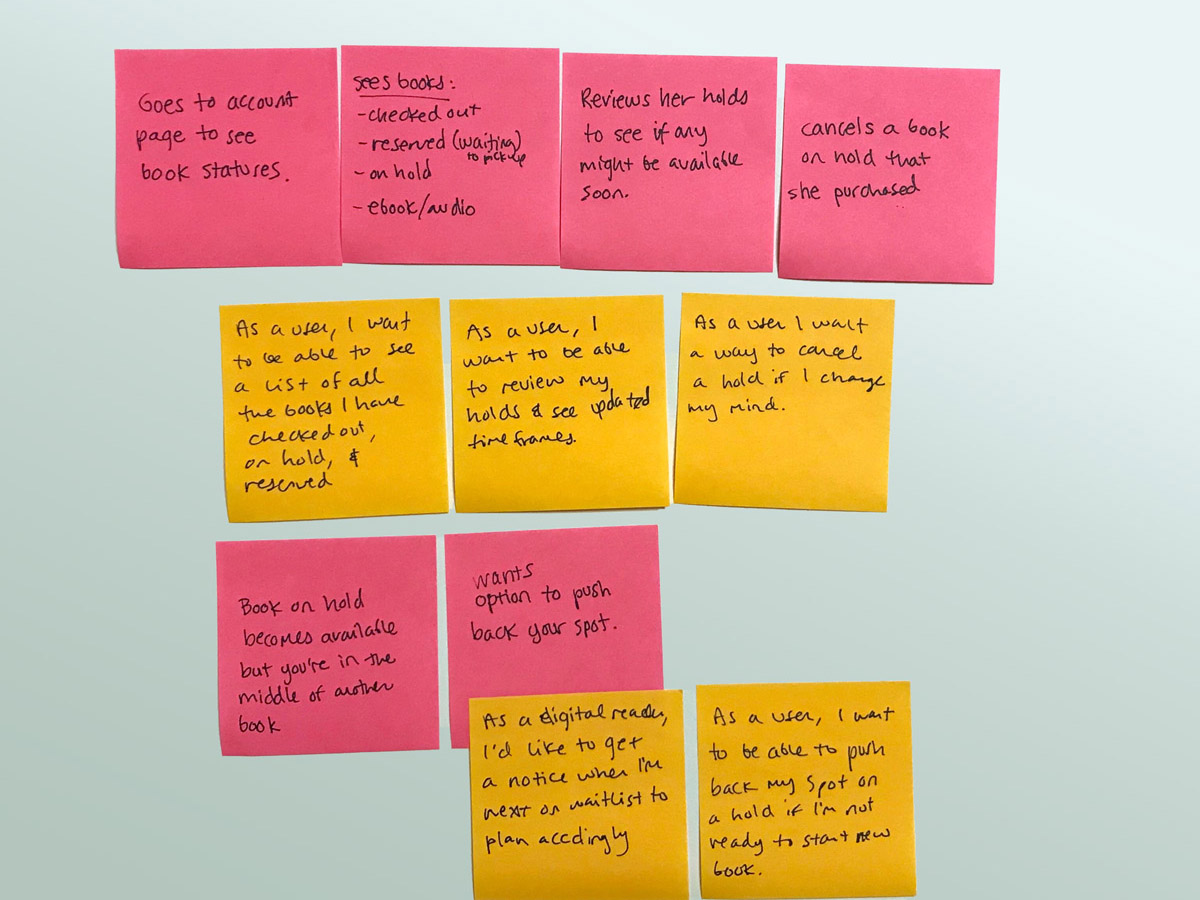 Goes to account
page to see
book statures.
sees books:
-checked out
-reserved (waiting)
to pick up
-on hold
-ebook/audio
Reviews her holds
to see if any
might be available
soon.
cancels a book
on hold that
she purchased
As a user, I want
to be able to see
a list of all
the books I have
checked out,
on hold, &
reserved
As a user, I
want to be able
to review my
holds & see updated
timeframes.
As a user I want
a way to cancel
a hold if I change
my mind.
Book on hold
becomes available
but you're in the
middle of another
book
wants
option to push
back your spot.
As a digital reader,
I'd like to get
a notice when I'm
next on waitlist to
plan accdingly
As a user, I want
to be able to push
back my spot on
a hold if I'm not
ready to start new
book.